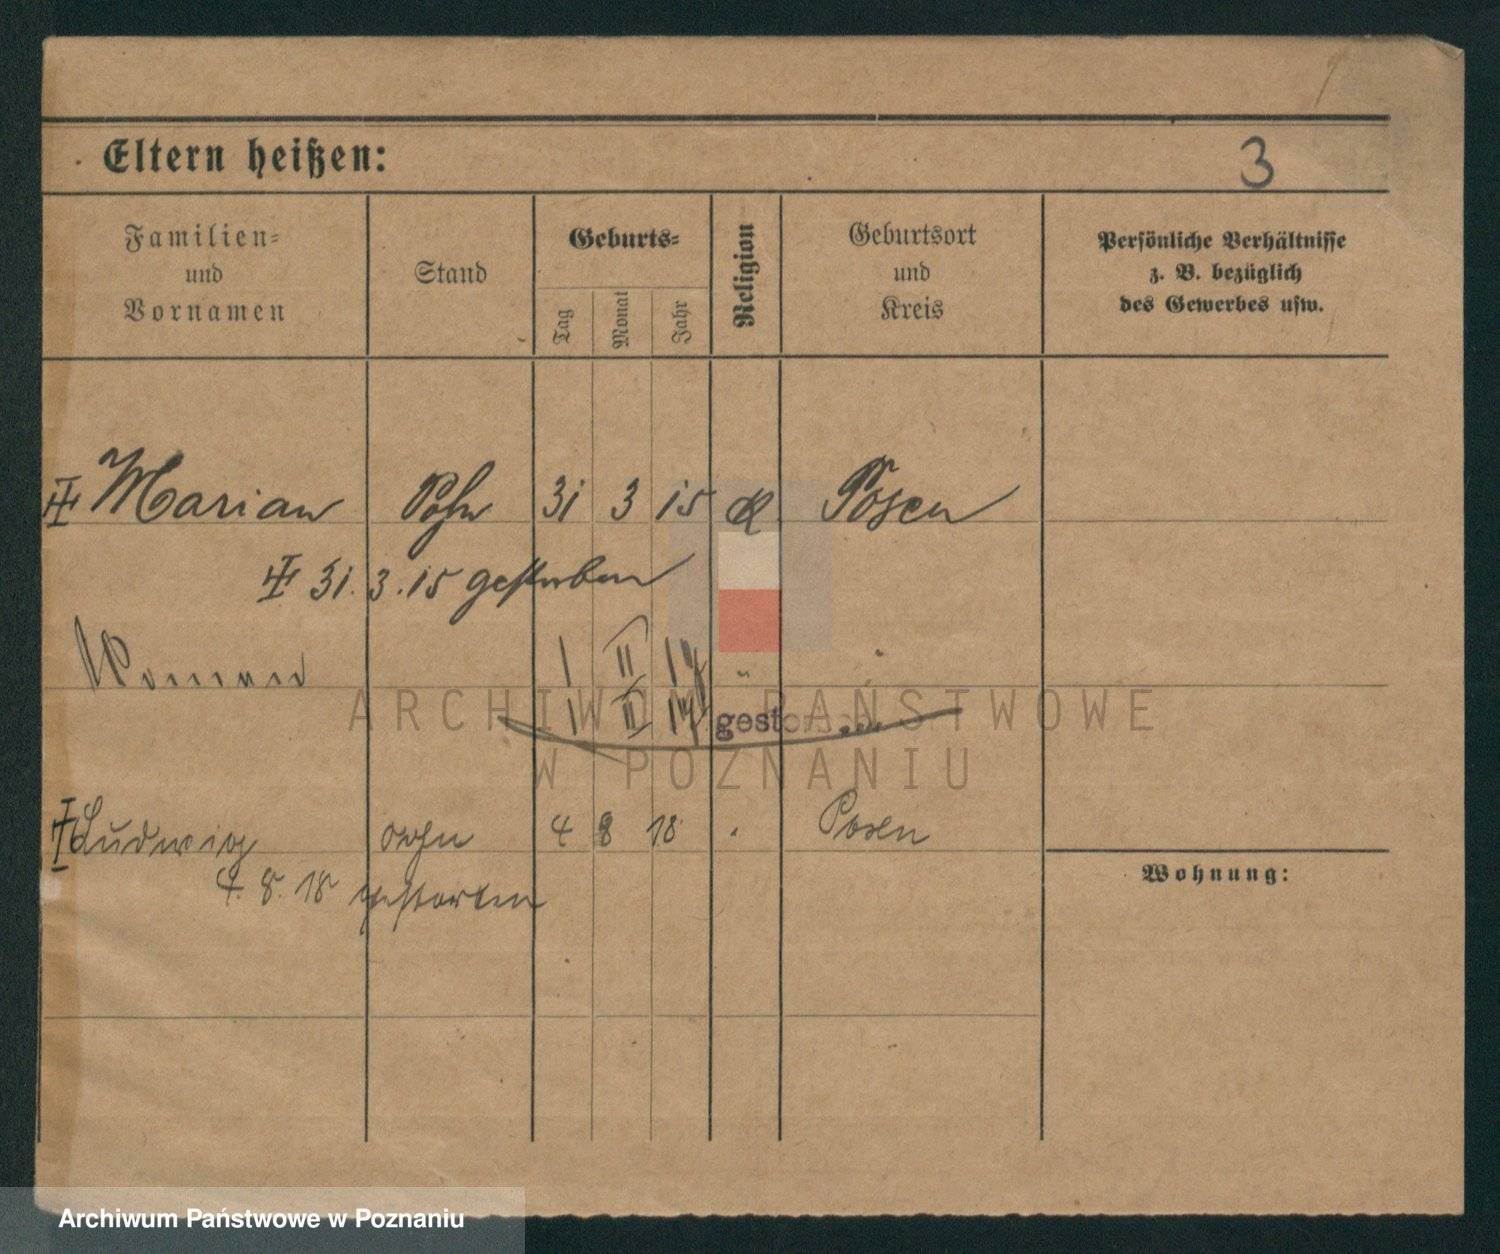 3
Eltern heißen:
Familien-
und
Vornamen
Stand
Geburts-
Tag
Monat
Jahr
Religion
Geburtsort
und
Kreis
Persönliche Verhältnisse
z. B. bezüglich
des Gewerbes usw.
Marian Sohn 31 3 15 K Posen
31. 3. 15 gestorben
1 II 17 "
1 II 17 gestorben
Ludwig Sohn 4 8 18 " Posen
4. 8. 18 gestorben
Wohnung:
ARCHIWUM PAŃSTWOWE
W POZNANIU
Archiwum Państwowe w Poznaniu